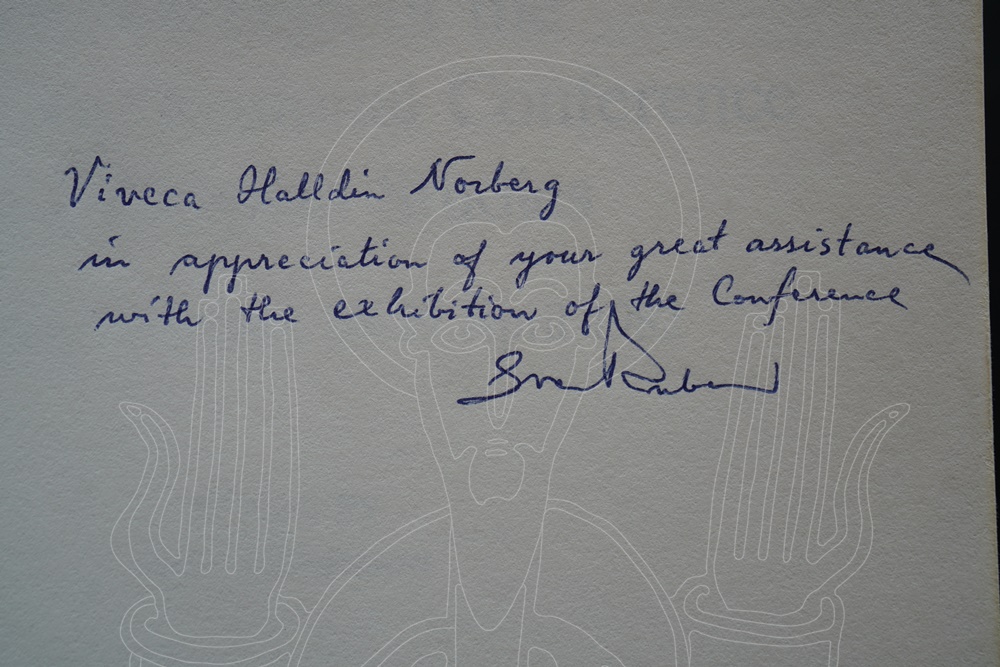 Viveca Halldin Norberg
in appreciation of your great assistance
with the exhibition of the Conference
Sven Ruben